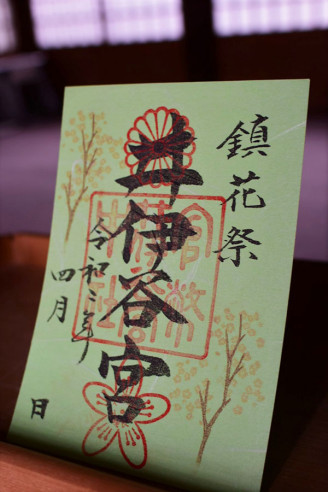 鎮花祭
井伊谷宮
令和三年
四月
日